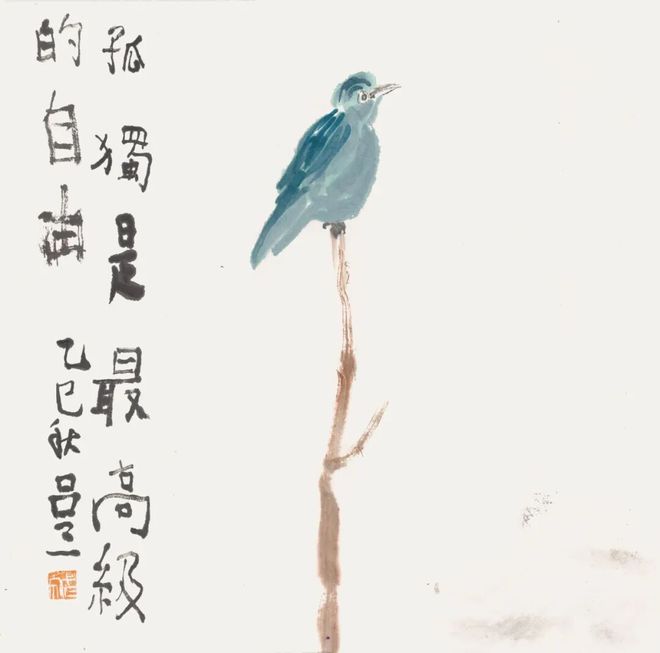 孤獨是最高級
的自由
乙巳秋 吕三